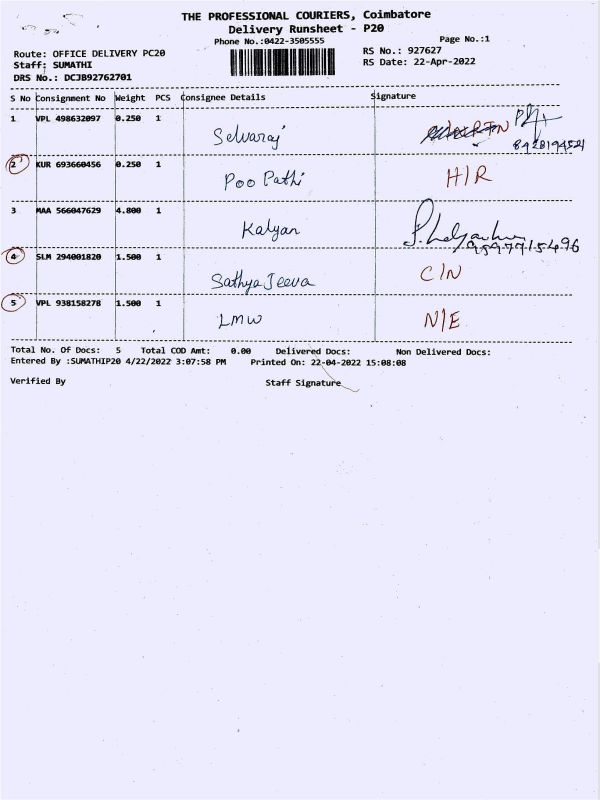 THE PROFESSIONAL COURIERS, Coimbatore
Delivery Runsheet - P20
Phone No.:0422-3505555
Page No.:1
Route: OFFICE DELIVERY PC20
RS No.: 927627
Staff: SUMATHI
RS Date: 22-Apr-2022
DRS No.: DCJB92762701
S No Consignment No Weight PCS Consignee Details Signature
1 VPL 498632097 0.250 1 Selvaraj
8428194521
2 KUR 693660456 0.250 1 Poo Pathi H/R
3 MAA 566047629 4.800 1 Kalyan
9597715496
4 SLM 294001820 1.500 1 Sathya Jeeva C/N
5 VPL 938158278 1.500 1 LMW N/E
Total No. Of Docs: 5 Total COD Amt: 0.00 Delivered Docs: Non Delivered Docs:
Entered By :SUMATHIP20 4/22/2022 3:07:58 PM Printed On: 22-04-2022 15:08:08
Verified By Staff Signature